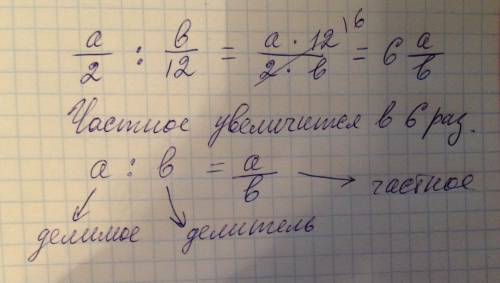 a/2 : b/12 = a · 12 6 / 2 · b = 6 a/b
Частное увеличится в 6 раз.
a : b = a/b → частное
делимое делитель